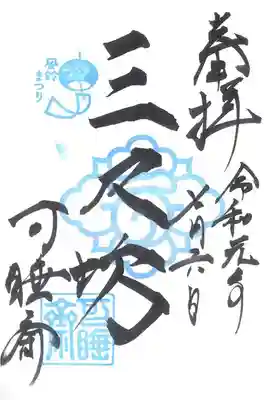 奉拝
令和元年
七月六日
三尺坊
可睡斎
風鈴
まつり
可睡
斎